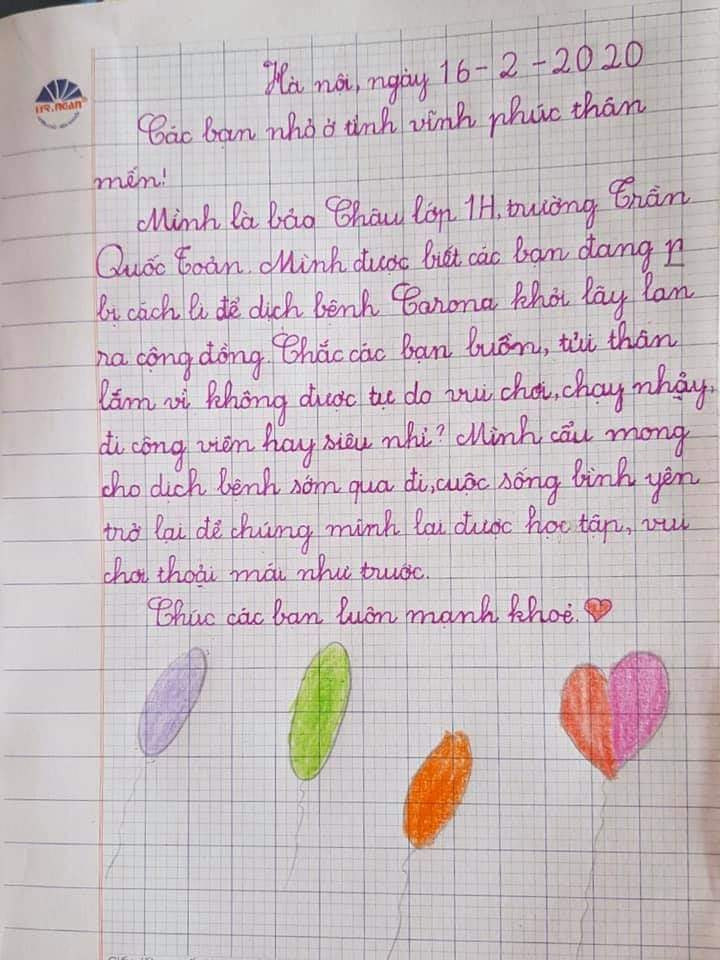 HR.NGAN
Hà nôi, ngày 16-2-2020
Các bạn nhỏ ở tỉnh vĩnh phúc thân
mến!
Mình là bảo Châu lớp 1H, trường Trần
Quốc Toản. Mình được biết các bạn đang n
bị cách li để dịch bệnh Carona khỏi lây lan
ra cộng đồng. Chắc các bạn buồn, tủi thân
lắm vì không được tực do vui chơi, chạy nhậy,
đi công viên hay siêu nhi? Mình cẩu mong
cho dịch bệnh sớm qua đi, cuộc sống bình yên
trở lại để chúng mình lai được học tập, vui
chơi thoải mái như trước.
Chúc các ban luôn mạnh khoẻ.